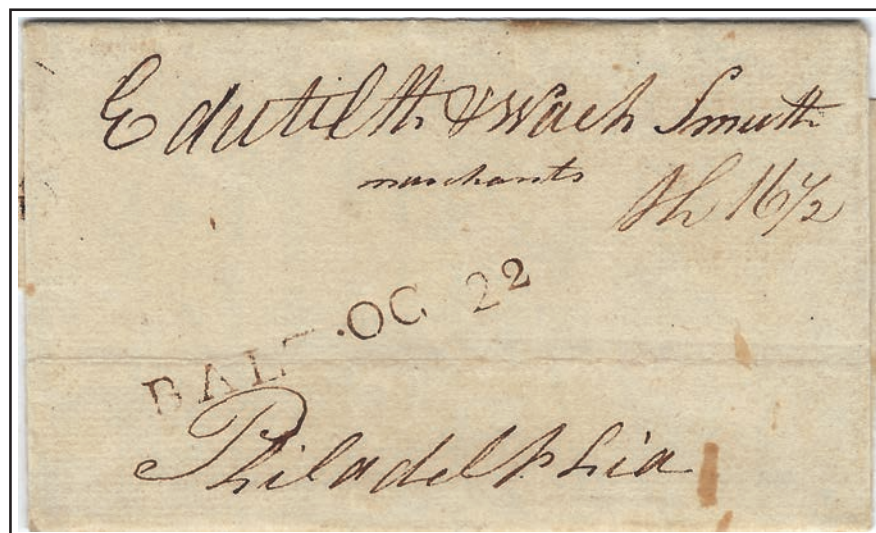 E dutilth & Wach Smuth
merchants
Sh 16 1/2
BALT·OC 22
Philadelphia